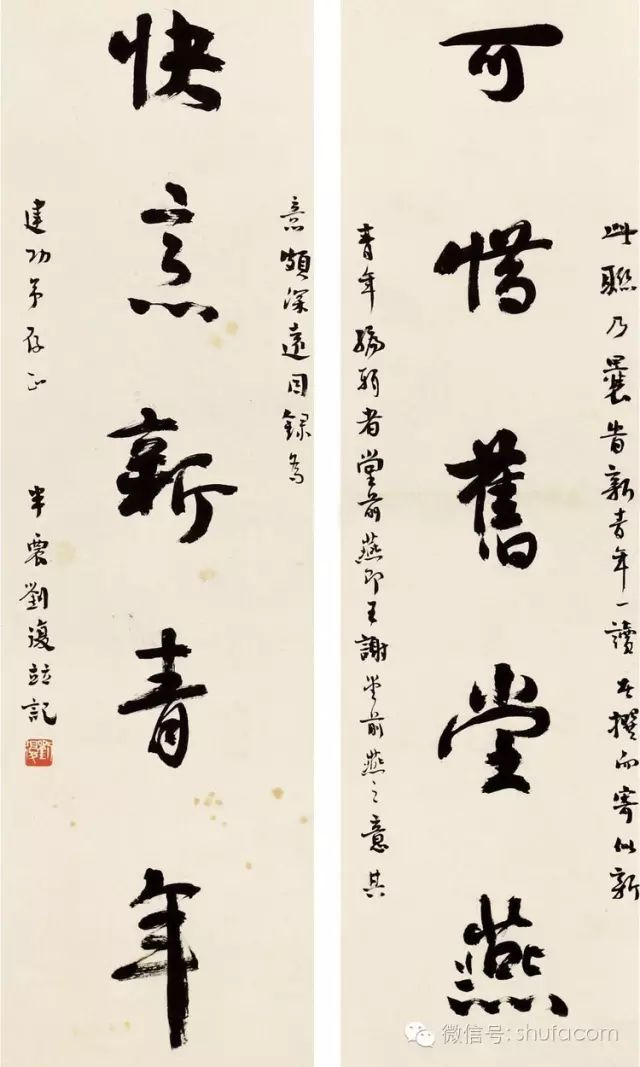 此聯乃曩昔新青年一讀者撰而寄似新
可惜舊堂燕
青年編輯者堂前燕即王謝堂前燕之意其
意頗深遠因錄為
快意新青年
建功弟存正 半農劉復並記
微信号: shufacom